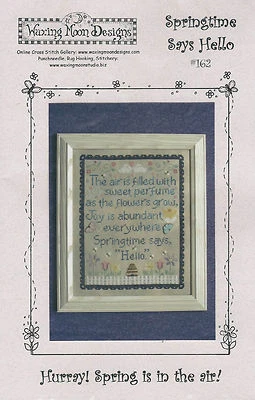 Waxing Moon Designs
Springtime
Says Hello
#162
Online Cross Stitch Gallery: www.waxingmoondesigns.com
Punchneedle, Rug Hooking, Stitchery:
www.waxingmoonstudio.biz
The air is filled with
sweet perfume
as the flower's grow,
Joy is abundant
everywhere
Springtime says,
"Hello."
Hurray! Spring is in the air!